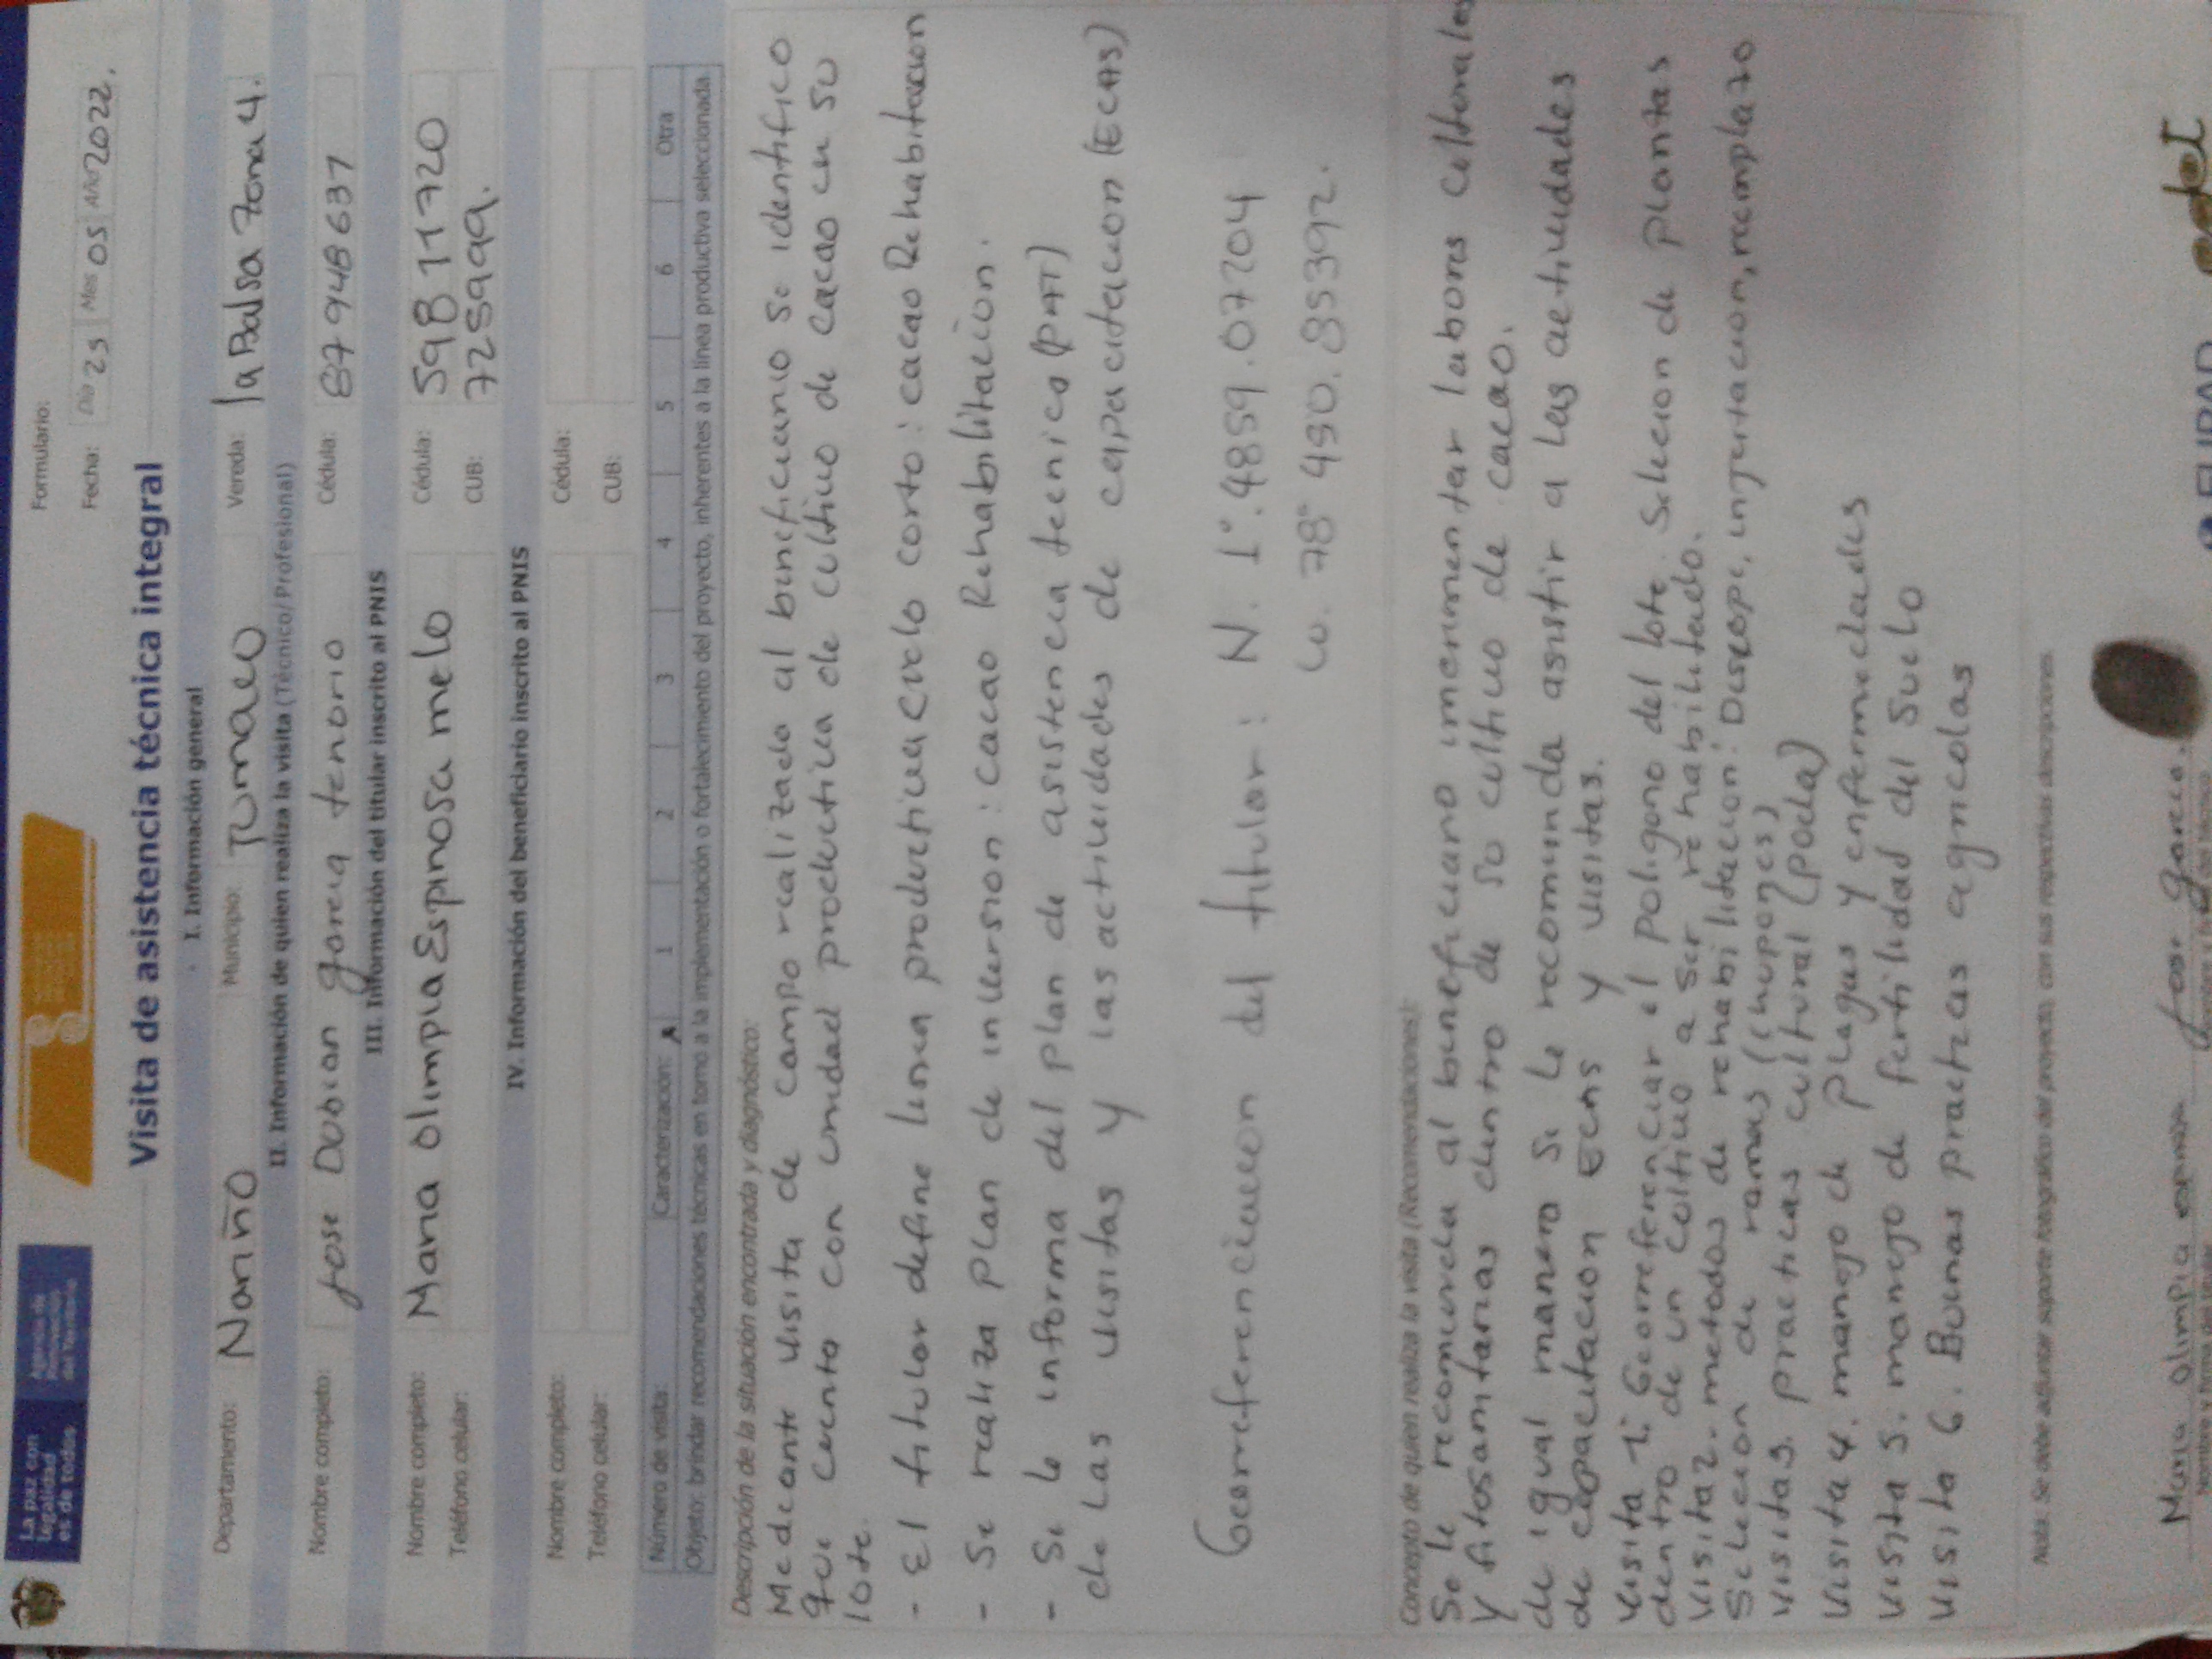 La paz con
legalidad
es de todos
Agencia de
Renovación
del Territorio
Formulario:
Fecha: Día 25 Mes 05 Año 2022.
Visita de asistencia técnica integral
I. Información general
Departamento: Nariño Municipio: Tumaco Vereda: la Balsa Zona 4.
II. Información de quien realiza la visita (Técnico/ Profesional)
Nombre completo: Jose Dobian garcia tenorio Cédula: 87948637
III. Información del titular inscrito al PNIS
Nombre completo: Maria Olimpia Espinosa melo Cédula: 59811720
Teléfono celular: CUB: 725999.
IV. Información del beneficiario inscrito al PNIS
Nombre completo: Cédula:
Teléfono celular: CUB:
Número de visita: Caracterización: 1 2 3 4 5 6 Otra
Objeto: brindar recomendaciones técnicas en torno a la implementación o fortalecimiento del proyecto, inherentes a la línea productiva seleccionada
Descripción de la situación encontrada y diagnóstico:
Mediante visita de campo realizada al beneficiario se identifico
que cuenta con unidad productiva de cultivo de cacao en su
lote.
- El titular define linea productiva ciclo corto: cacao Rehabitacion
- Se realiza plan de inversion: cacao Rehabilitacion.
- Se le informa del plan de asistencia tecnico (PAT)
de las visitas y las actividades de capacitacion (ECAS)
Georreferenciacion del titular: N. 1°.4859.07204
W. 78° 490.85392.
Concepto de quien realiza la visita (Recomendaciones):
Se le recomienda al beneficiario incrementar labores culturales
y fitosanitarias dentro de su cultivo de cacao.
de igual manera se le recomienda asistir a las actividades
de capacitacion Ecas y visitas.
Visita 1: Georreferenciar el poligono del lote. Seleccion de plantas
dentro de un cultivo a ser rehabilitado.
Visita 2. metodos de rehabilitacion: Descope, injertacion, reemplazo
Seleccion de ramas (chupones)
Visita 3. practicas cultural (poda)
Visita 4. manejo de plagas y enfermedades
Visita 5. manejo de fertilidad del suelo
Visita 6. Buenas practicas agricolas
Nota: Se debe adjuntar soporte fotográfico del proyecto, con sus respectivas descripciones.
Maria Olimpia Jose Garcia.